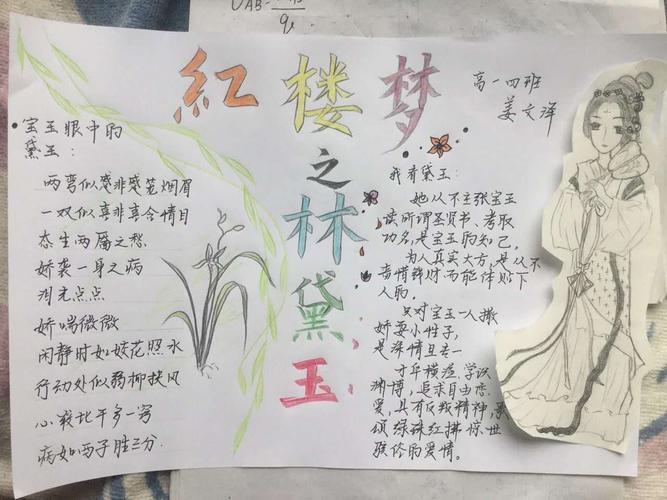 UAB=
q
红楼梦
之
林
黛
玉
高一四班
姜文泽
宝玉眼中的
黛玉:
两弯似感非感笼烟眉
一双似喜非喜含情目
态生两靥之愁
娇袭一身之病
泪光点点
娇喘微微
闲静时如姣花照水
行动处似弱柳扶风
心较比干多一窍
病如西子胜三分
我看黛玉:
她从不主张宝玉
读所谓圣贤书、考取
功名,是宝玉的知己,
为人真实大方,是从不
吝惜钱财而能体贴下
人的。
只对宝玉一人撒
娇耍小性子,
是深情且专一
才华横溢、学识
渊博,追求自由恋
爱,具有反叛精神,歌
颂绿珠红拂惊世
骇俗的爱情。